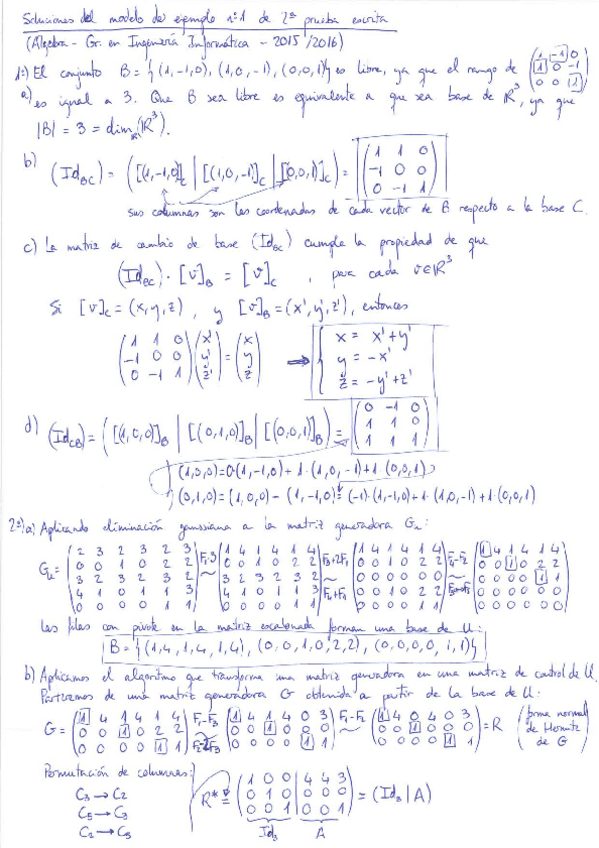 Soluciones del modelo de ejemplo nº1 de 2ª prueba escrita
(Álgebra - Gr. en Ingeniería Informática - 2015/2016)
1º) El conjunto B = {(1,-1,0), (1,0,-1), (0,0,1)} es libre, ya que el rango de (1 -1 0 / 1 0 -1 / 0 0 1)
a) es igual a 3. Que B sea libre es equivalente a que sea base de ℝ³, ya que
|B| = 3 = dim_ℝ(ℝ³).
b) (Id_BC) = ([(1,-1,0)]_C | [(1,0,-1)]_C | [(0,0,1)]_C) = (1 1 0 / -1 0 0 / 0 -1 1)
sus columnas son las coordenadas de cada vector de B respecto a la base C.
c) La matriz de cambio de base (Id_BC) cumple la propiedad de que
(Id_BC) · [v]_B = [v]_C , para cada v∈ℝ³
Si [v]_C = (x,y,z) , y [v]_B = (x',y',z'), entonces
(1 1 0 / -1 0 0 / 0 -1 1) (x' / y' / z') = (x / y / z) → { x = x'+y' / y = -x' / z = -y'+z'
d) (Id_CB) = ([(1,0,0)]_B | [(0,1,0)]_B | [(0,0,1)]_B) = (0 -1 0 / 1 1 0 / 1 1 1)
(1,0,0) = 0·(1,-1,0) + 1·(1,0,-1) + 1·(0,0,1)
(0,1,0) = (1,0,0) - (1,-1,0) = (-1)·(1,-1,0) + 1·(1,0,-1) + 1·(0,0,1)
2º) a) Aplicando eliminación gaussiana a la matriz generadora G_U:
G_U = (2 3 2 3 2 3 / 0 0 1 0 2 2 / 3 2 3 2 3 2 / 4 1 0 1 1 3 / 0 0 0 0 1 1)
Las filas con pivote en la matriz escalonada forman una base de U:
B = {(1,4,1,4,1,4), (0,0,1,0,2,2), (0,0,0,0,1,1)}
b) Aplicamos el algoritmo que transforma una matriz generadora en una matriz de control de U.
Partiremos de una matriz generadora G obtenida a partir de la base de U:
G = (1 4 1 4 1 4 / 0 0 1 0 2 2 / 0 0 0 0 1 1) F₁-F₃ F₂-2F₃ ~ (1 4 1 4 0 3 / 0 0 1 0 0 0 / 0 0 0 0 1 1) F₁-F₂ ~ (1 4 0 4 0 3 / 0 0 1 0 0 0 / 0 0 0 0 1 1) = R (forma normal de Hermite de G)
Permutación de columnas:
C₃ → C₂
C₅ → C₃
C₂ → C₅
R* = (1 0 0 | 4 4 3 / 0 1 0 | 0 0 0 / 0 0 1 | 0 0 1) = (Id₃ | A)
Id₃ A